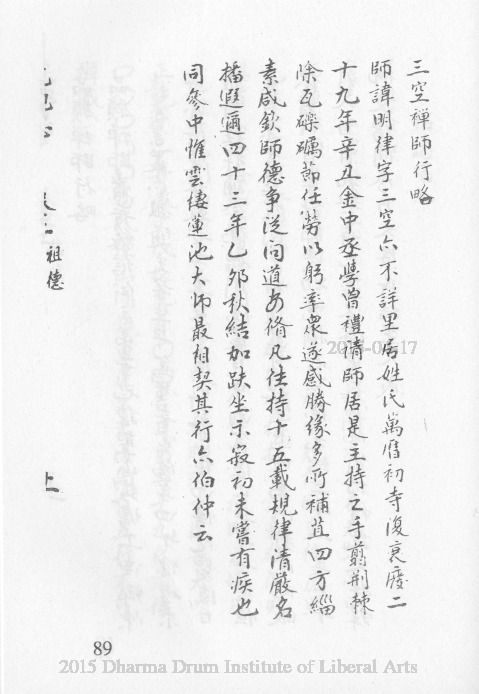 三空禅師行略
師諱明律字三空亦不詳里居姓氏萬曆初寺復衰廢二
十九年辛丑金中丞學曾禮請師居是主持之手剪荆棘
除瓦礫礪節任勞以躬率衆遂感勝緣多所補苴四方緇
素咸欽師德争從问道安脩凡住持十五載規律清嚴名
播遐邇四十三年乙夘秋結加趺坐示寂初未嘗有疾也
同叅中惟雲棲蓮池大师最相契其行亦伯仲云
祖德
上
89
2015 Dharma Drum Institute of Liberal Arts